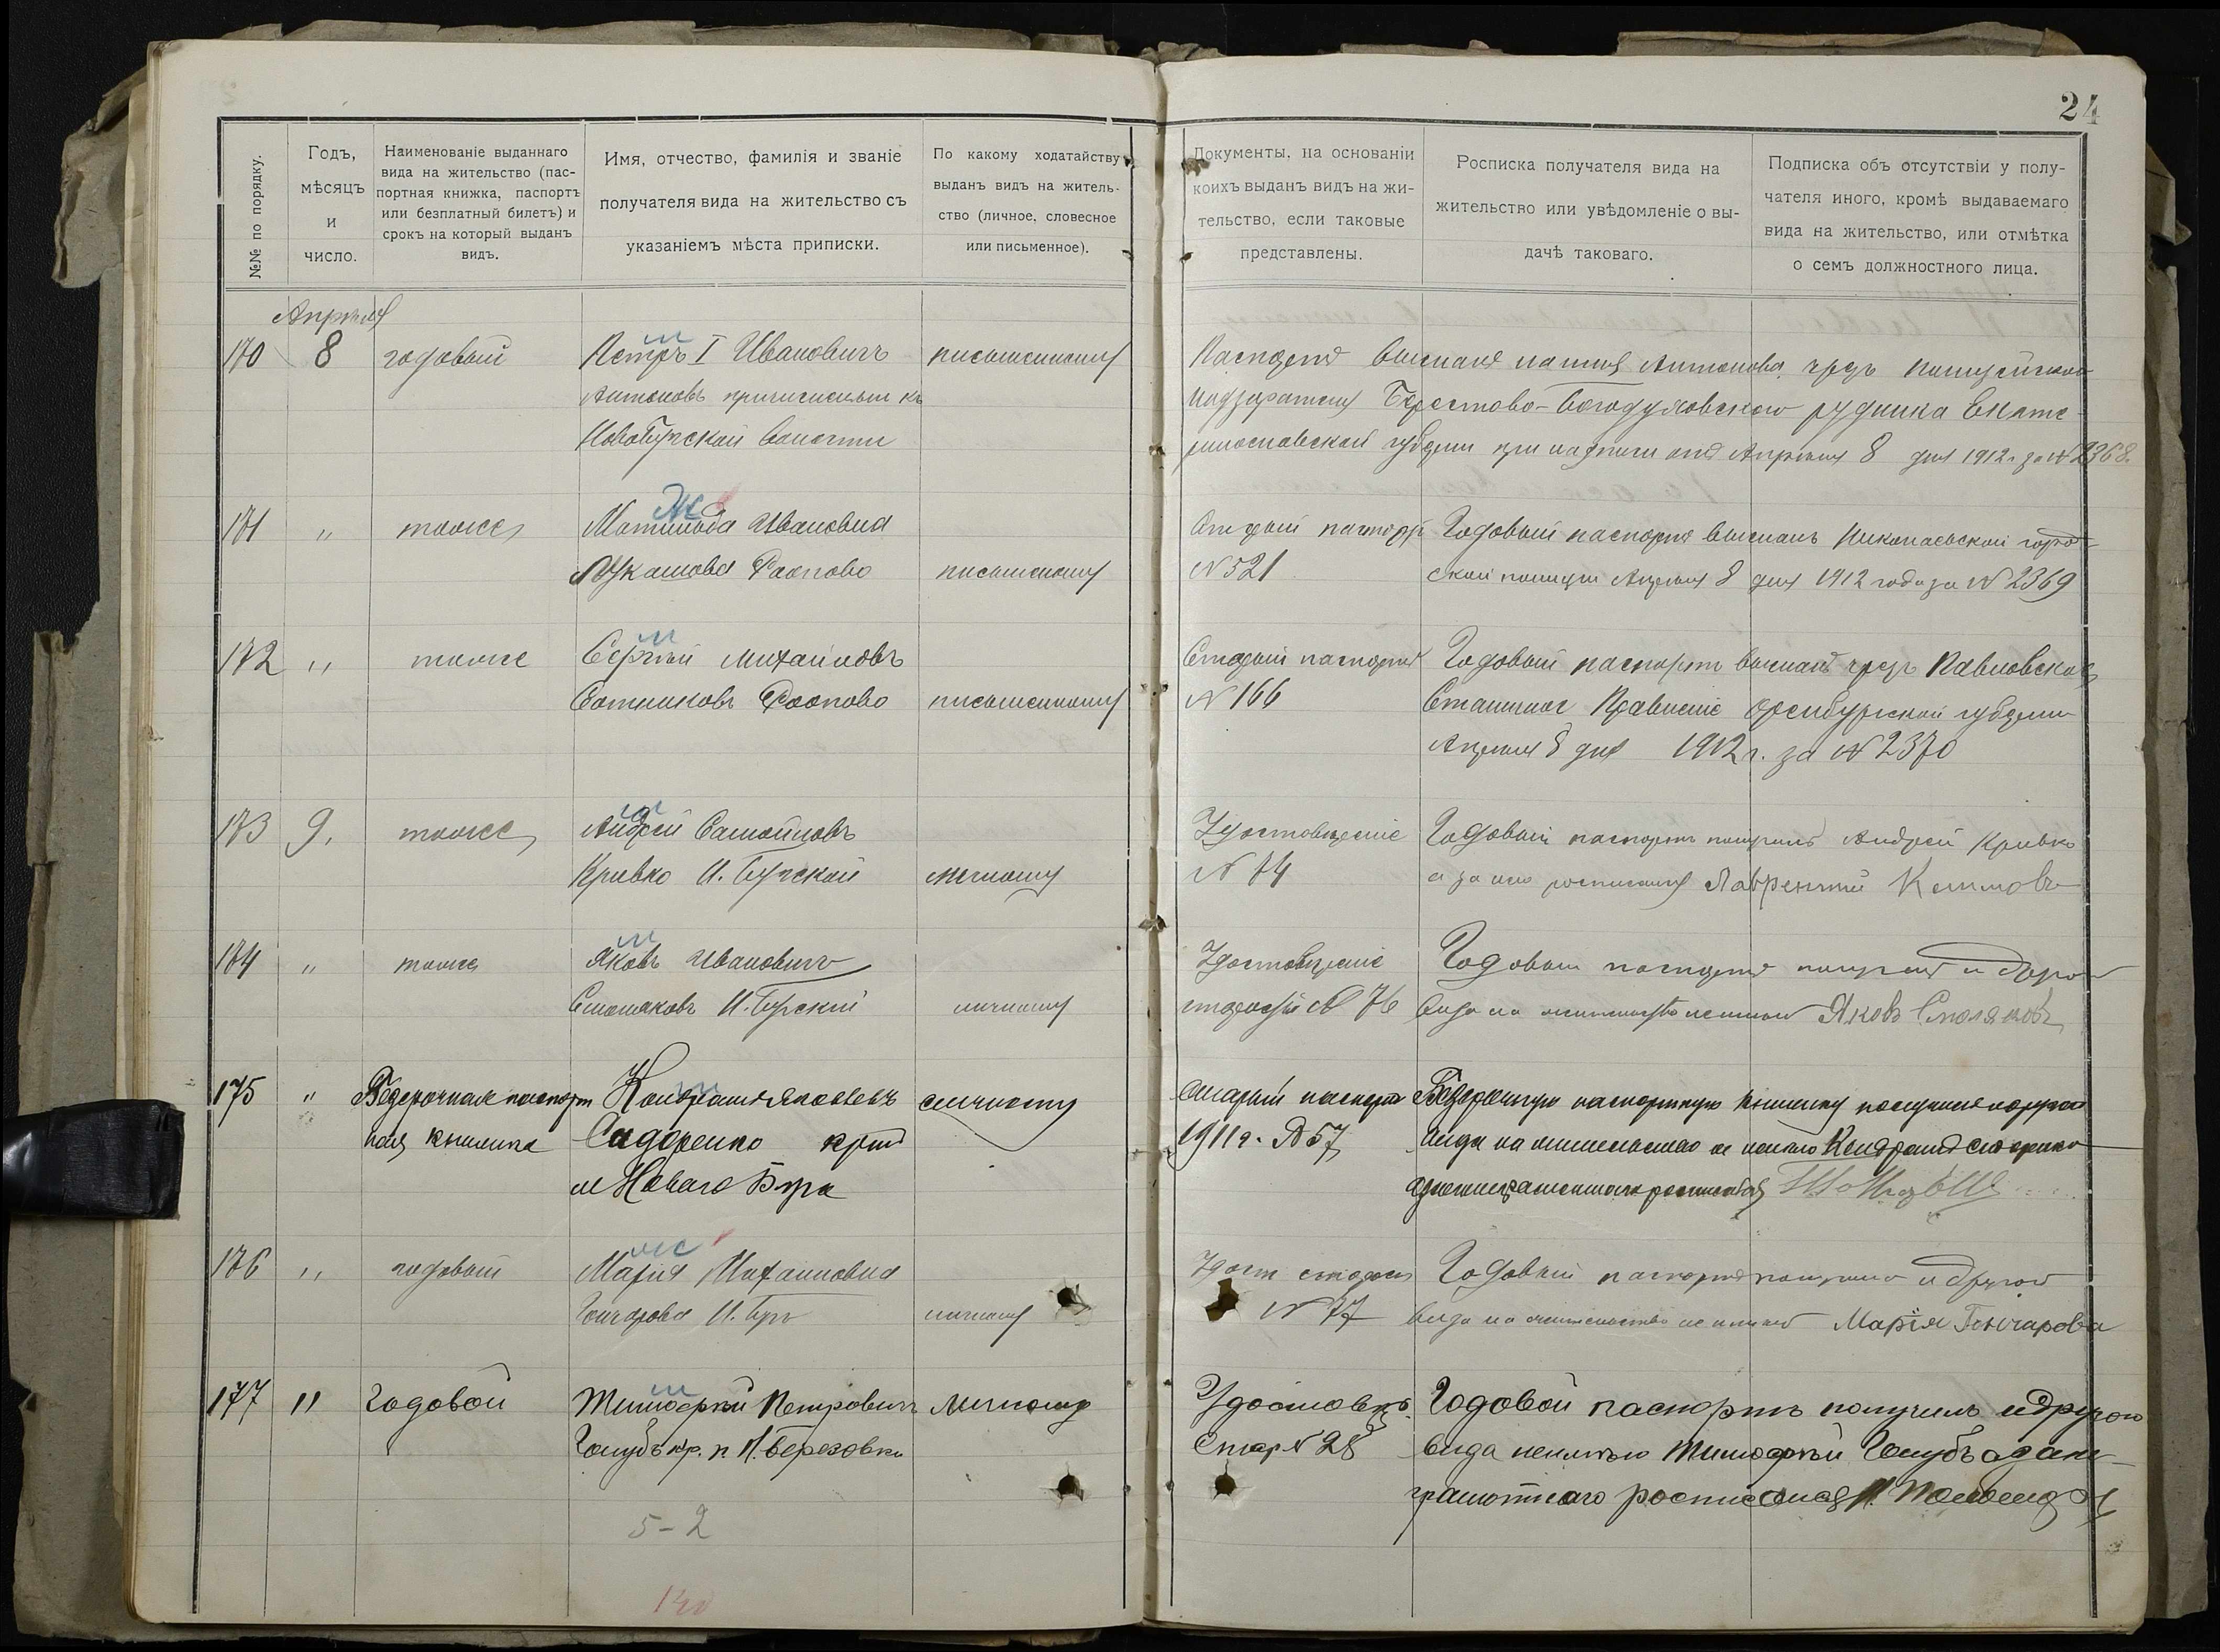 24
№№ по порядку.
Годъ,
мѣсяцъ
и
число.
Наименованіе выданнаго
вида на жительство (пас-
портная книжка, паспортъ
или безплатный билетъ) и
срокъ на который выданъ
видъ.
Имя, отчество, фамилія и званіе
получателя вида на жительство съ
указаніемъ мѣста приписки.
По какому ходатайству
выданъ видъ на житель-
ство (личное, словесное
или письменное).
Документы, на основаніи
коихъ выданъ видъ на жи-
тельство, если таковые
представлены.
Росписка получателя вида на
жительство или увѣдомленіе о вы-
дачѣ таковаго.
Подписка объ отсутствіи у полу-
чателя иного, кромѣ выдаваемаго
вида на жительство, или отмѣтка
о семъ должностного лица.
Апрѣля
170 8 годовый
Петръ I Ивановичъ
Антоновъ къ
Новобугской волости
письменному
Паспортъ высланъ на имя Антонова чрезъ
Берестово-Богодуховскаго рудника Екате-
ринославской губерніи при надписи отъ Апрѣля 8 дня 1912 г. за № 2368.
171 " тоже
Ивановна
Лукашова
письменному
паспортъ
№ 521
Годовый паспортъ высланъ Николаевской город-
ской полиціи Апрѣля 8 дня 1912 года за № 2369
172 " тоже
Сергѣй Михайловъ
Сотниковъ
письменному
Старый паспортъ
№ 166
Годовый паспортъ высланъ чрезъ Павловское
Станичное Правленіе Оренбургской губерніи
Апрѣля 8 дня 1912 г. за № 2370
173 9. тоже
Андрей Самойловъ
Кривко Н. Бугской
личному
Удостовѣреніе
№ 74
Годовый паспортъ получилъ Андрей Кривко
а за него росписался Лаврентій Климовъ
174 " тоже
Яковъ Ивановичъ
Смоляковъ Н. Бугскій
личному
Удостовѣреніе
старосты № 76
Годовый паспортъ получилъ и другого
вида на жительство не имѣю Яковъ Смоляковъ
175 " Безсрочная паспорт
ная книжка
Кондратъ Яковлевъ
Сидоренко крт
м Новаго Буга
личному
старый паспортъ
1911 г. № 57
Безсрочную паспортную книжку получилъ и другого
вида на жительство не имѣю Кондратъ Сидоренко
176 " годовый
Марія Михайловна
Гончарова Н. Бугъ
личному
Удост старосты
№ 77
Годовый паспортъ получила и другого
вида на жительство не имѣю Марія Гончарова
177 " Годовой
Тимофѣй Петровичъ
Голубъ кр. п. Н. Березовки
личному
Удостовѣр.
Стар № 28
Годовой паспортъ получилъ и другого
вида неимѣю Тимофѣй Голубъ а за не-
грамотнаго росписался
5-2